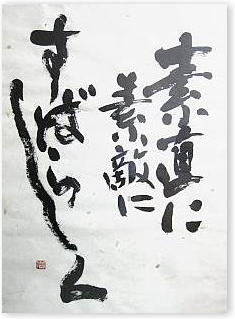 素直に
素敵に
すばらしく